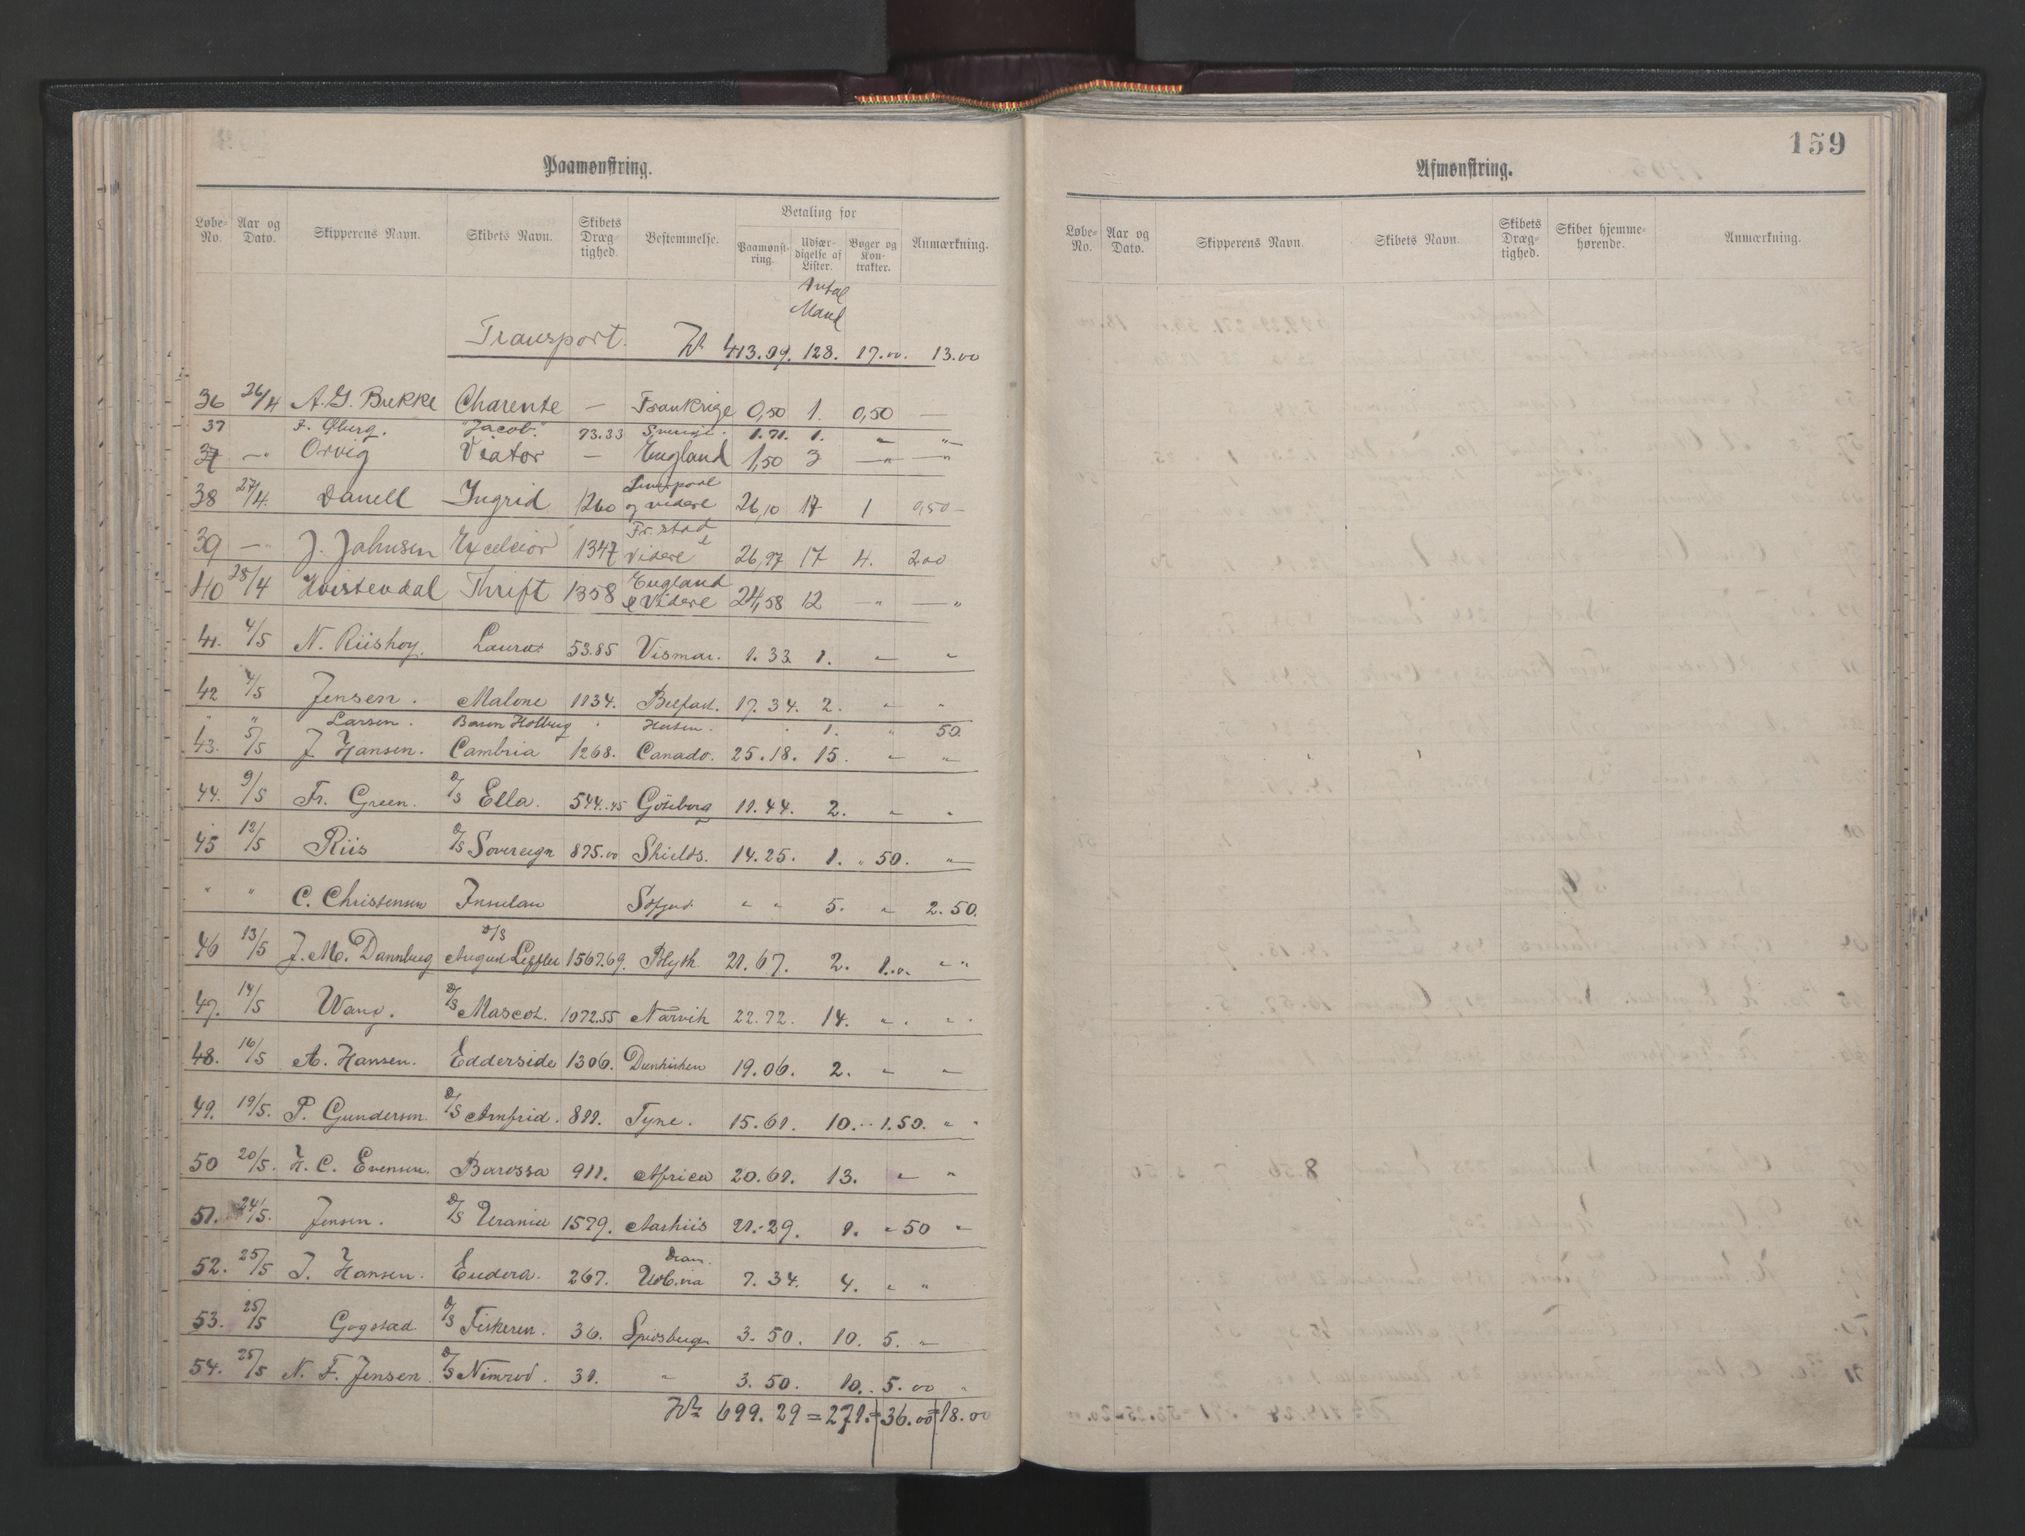 Paamønstring.
Løbe-No. Aar og Dato. Skipperens Navn. Skibets Navn. Skibets Dræg-tighed. Bestemmelse. Betaling for Paamønst-ring. Udfær-digelse af Lister. Bøger og Kon-trakter. Anmærkning.
Antal Mand
Transport. Kr 413.09. 128. 17.00. 13.00
36 26/4 A. G. Brekke Charente — Frankrige 0,50 1. 0,50 —
37 F. Øberg. "Jacob." 73.33 Sverige. 1.71. 1. " "
37 —"— Orvig Viator — England 1,50 3 —"— —"—
38 27/4. Danell Ingrid 1260 Liverpool og videre 26,10 17 1 9,50 —
39 —"— J. Johnsen Excelcior 1347 Fr.stad & Videre 26,97 17 4. 2.00
40 28/4 Hvistendal Thrift 1358 England & Videre 24,58 12 —"— —"—
41. 4/5 N. Riishoy. Laura 53.85 Vismar. 1.33 1. " "
42 4/5 Jensen. Malone 1134. Belfast. 17.34. 2. " "
" " Larsen. Baron Holberg " 1. " 50.
43. 5/5 J Hansen. Cambria 1268. Canada. 25.18. 15. " "
44. 9/5 Fr. Green. D/S Ella. 544.45 Göteborg 11.44. 2. " "
45 12/5 Riis D/S Sovereign 875.00 Shields. 14.25. 1. " 50. "
" " C. Christensen Insulan " " 5. " 2.50.
46 13/5 J. M. Dannberg D/S August Leffler 1567.69. Blyth 21.67. 2. 1.00. " "
47. 14/5 Wang. D/S Mascot. 1072.55 Narvik 22.72. 14. " "
48. 16/5 A. Hansen. Edderside 1306. Dunkirken 19.06. 2. " "
49. 19/5. P. Gundersen. D/S Arnfrid. 811. Tyne. 15.61. 10. 1.50. " "
50 20/5. H. C. Evensen. Barossa 911. Africa 20.61. 13. " "
51. 24/5. Jensen. D/S Urania 1579. Aarhuis 21.29. 1. " 50 "
52. 25/5 J. Hansen. Eudora. 267. 7.34. 4. " "
53. 25/5 Gogstad D/S Fiskeren. 36. Spidsbergen 3.50. 10. 5. "
54. 25/5 N. F. Jensen. D/S Nimrod. 31. " 3.50. 10. 5.00 "
Kr 699.29 = 271. = 36.00 = 18.00
159
Afmønstring.
Løbe-No. Aar og Dato. Skipperens Navn. Skibets Navn. Skibets Dræg-tighed. Skibet hjemme-hørende. Anmærkning.